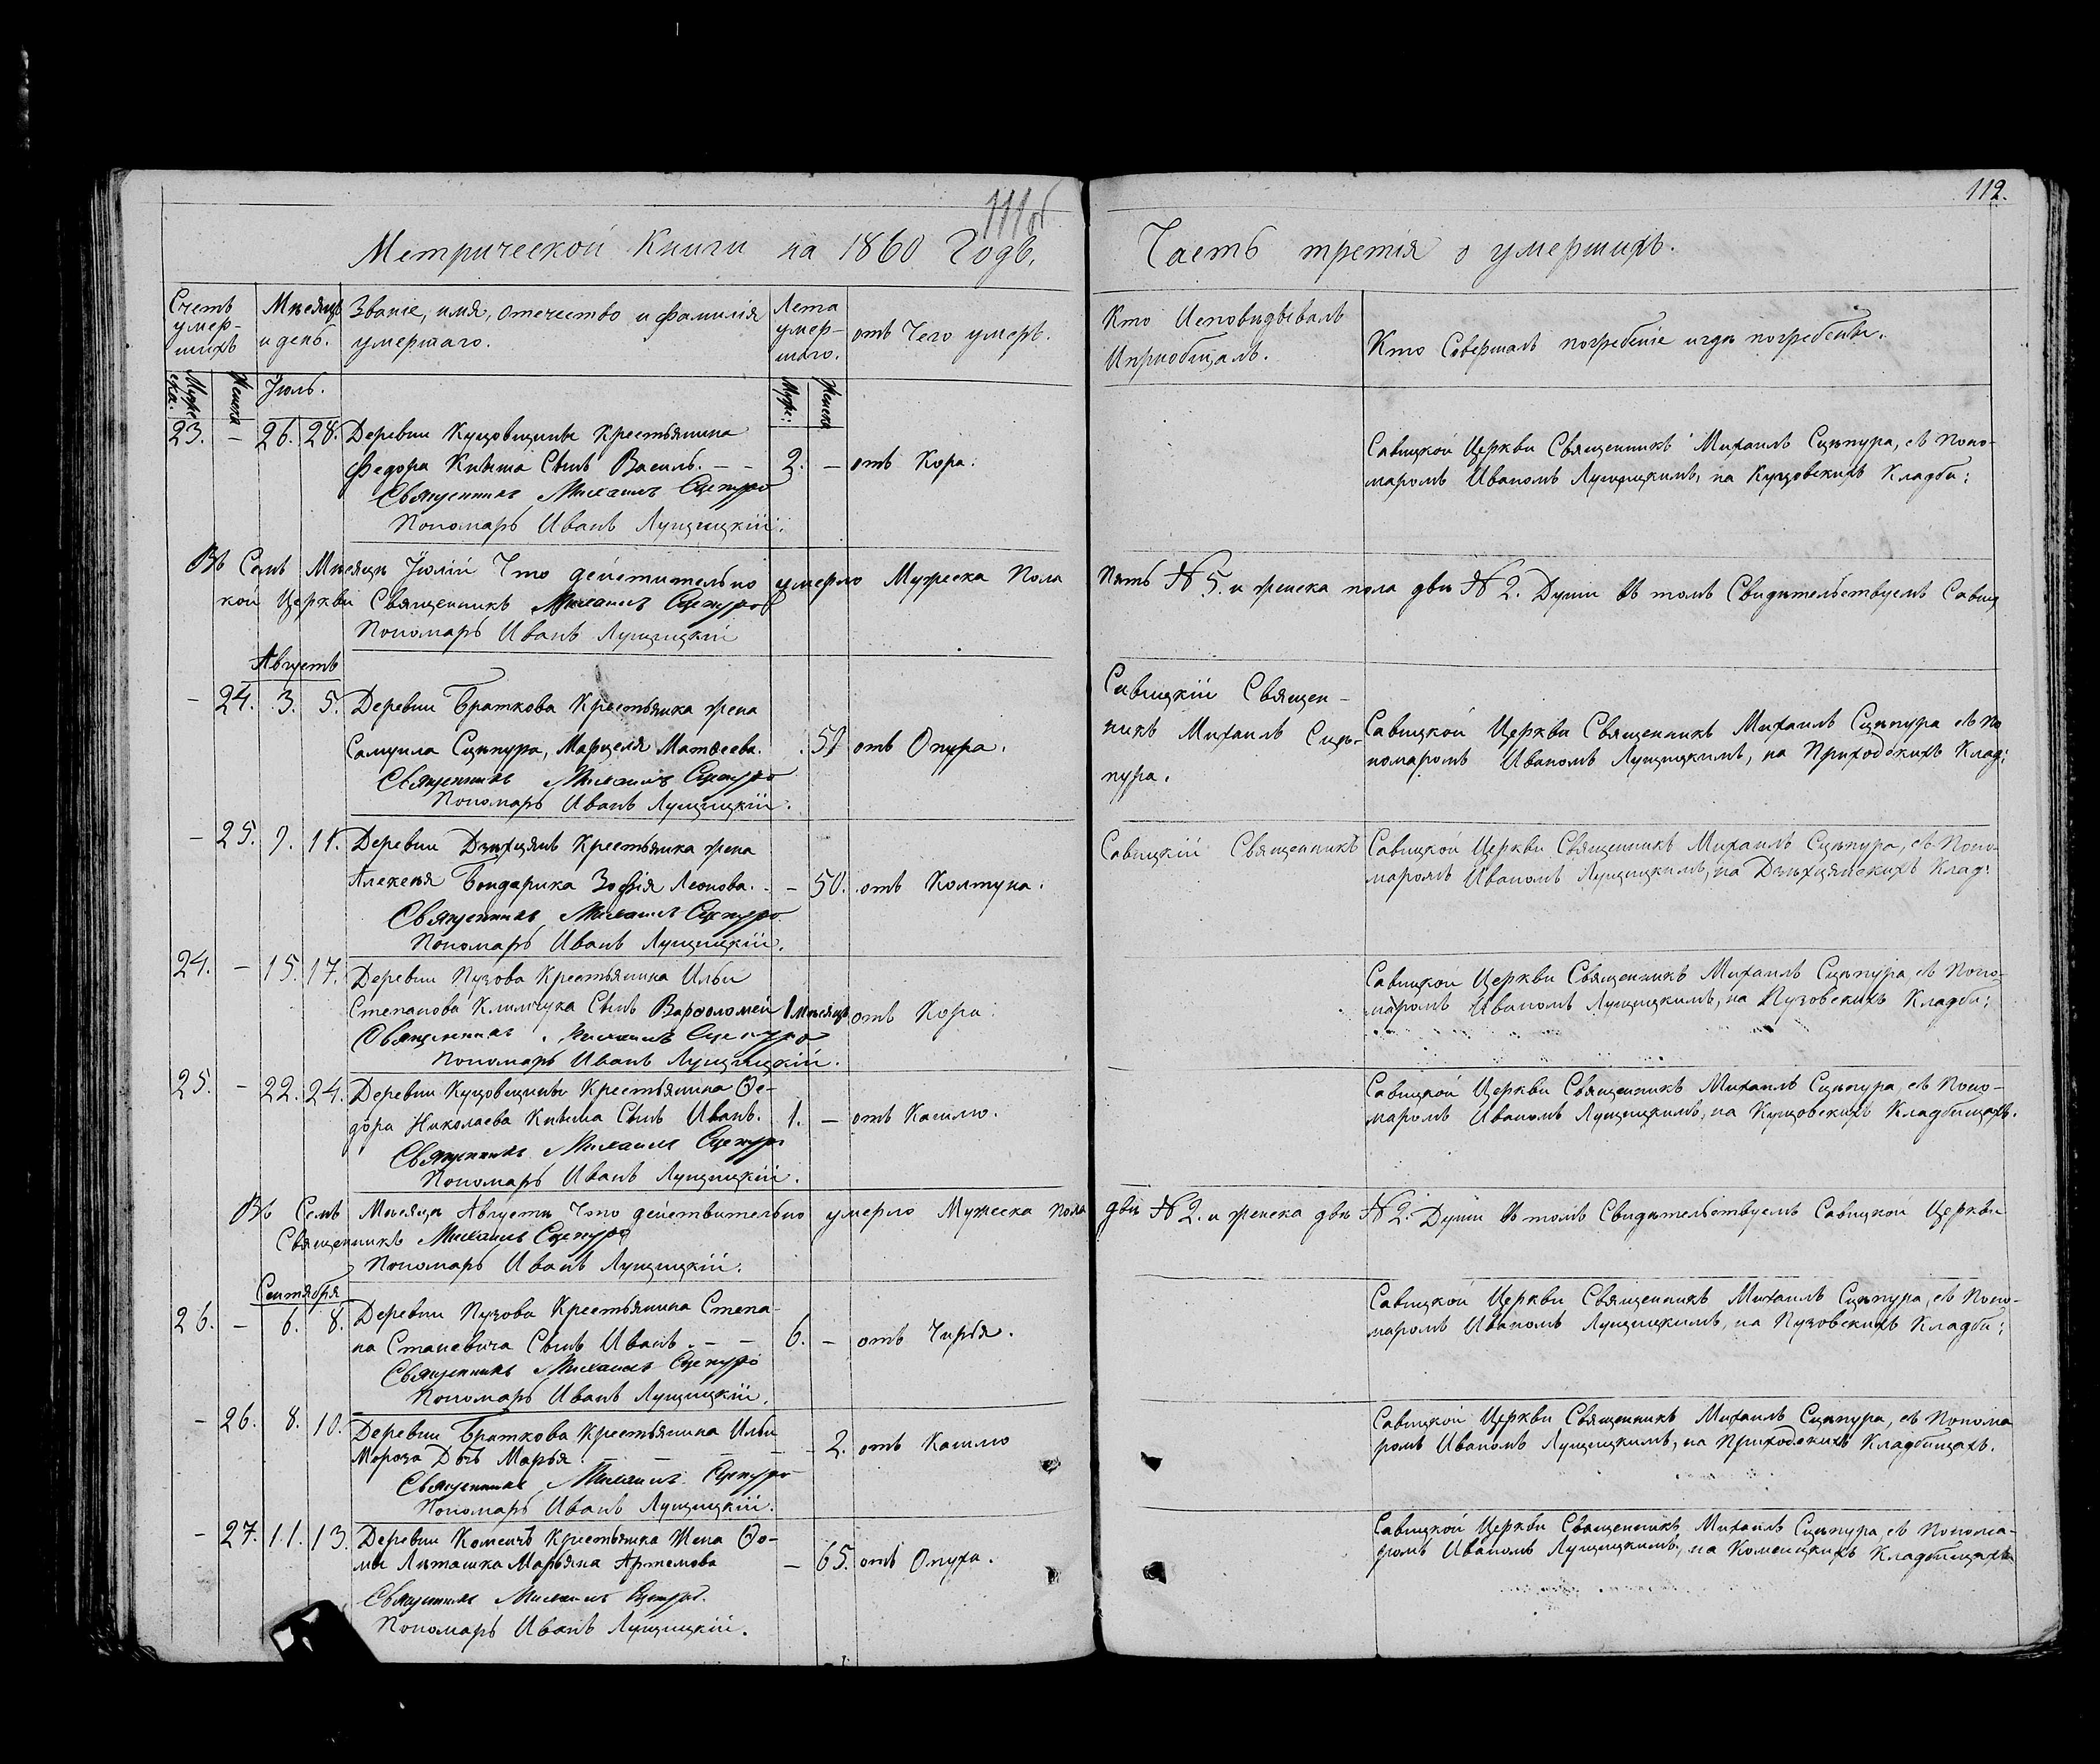 111об
112.
Метрической Книги на 1860 Годъ,
Часть третія о умершихъ.
Счетъ умер-шихъ
Мѣсяцъ и день.
Званіе, имя, отечество и фамилія умершаго.
Лета умер-шаго.
отъ Чего умеръ.
Кто Исповѣдывалъ Ипріобщалъ.
Кто Совершалъ погребеніе игдѣ погребены.
Муже-ска:
Женска
Іюль.
Муже:
Женска
23. – 26. 28. Деревни Куцовщины Крестьянина
Федора Кивша Сынъ Василь. – – 2. – отъ Кора:
Священникъ Михаилъ Сцепуро
Пономарь Иванъ Лущицкій:
Савицкой Церкви Священникъ Михаилъ Сцѣпура, съ Поно-
маромъ Иваномъ Лущицкимъ, на Куцовскихъ Кладби:
Въ Семъ Мѣсяцѣ Іюлій Что дейстительно умерло Мужеска Пола Пять № 5. и женска пола двѣ № 2. Души въ томъ Свидѣтельствуемъ Савиц
кой Церкви Священникъ Михаилъ Сцепуро
Пономарь Иванъ Лущицкій
Августъ
– 24. 3. 5. Деревни Браткова Крестьянка жена
Самуила Сцѣпура, Марцеля Матѳеева. . 50 отъ Опура.
Священникъ Михаилъ Сцепуро
Пономарь Иванъ Лущицкій.
Савицкій Священ-
никъ Михаилъ Сцѣ-
пура.
Савицкой Церкви Священникъ Михаилъ Сцѣпура съ По
номаромъ Иваномъ Лущицкимъ, на Приходскихъ Клад:
– 25. 9. 11. Деревни Дзѣхцямъ Крестьянка жена
Алексѣя Бондарика Зофія Леонова. – 50. отъ Колтуна.
Священникъ Михаилъ Сцепуро
Пономарь Иванъ Лущицкій.
Савицкій Священникъ
Савицкой Церкви Священникъ Михаилъ Сцѣпура, съ Поно-
маромъ Иваномъ Лущицкимъ, на Дзѣхцямскихъ Клад:
24. – 15. 17. Деревни Пузова Крестьянина Ильи
Степанова Климчука Сынъ Варѳоломей 1 Мѣсяцъ отъ Кора:
Священникъ Михаилъ Сцепуро
Пономарь Иванъ Лущицкій.
Савицкой Церкви Священникъ Михаилъ Сцѣпура съ Поно-
маромъ Иваномъ Лущицкимъ, на Пузовскихъ Кладби:
25. – 22. 24. Деревни Куцовщины Крестьянина Ѳе-
дора Николаева Кивша Сынъ Иванъ. 1. – отъ Кашлю.
Священникъ Михаилъ Сцепуро
Пономарь Иванъ Лущицкій.
Савицкой Церкви Священникъ Михаилъ Сцѣпура, съ Поно-
маромъ Иваномъ Лущицкимъ, на Куцовскихъ Кладбищахъ.
Въ Семъ Мѣсяцѣ Августѣ Что действительно умерло Мужеска пола двѣ № 2. и женска двѣ № 2. Души въ томъ Свидѣтельствуемъ Савицкой Церкви
Священникъ Михаилъ Сцепуро
Пономарь Иванъ Лущицкій.
Сентября
26. – 6. 8. Деревни Пузова Крестьянина Степа-
на Станевича Сынъ Иванъ. – – 6. – отъ Чирья.
Священникъ Михаилъ Сцепуро
Пономарь Иванъ Лущицкій.
Савицкой Церкви Священникъ Михаилъ Сцѣпура, съ Поно-
маромъ Иваномъ Лущицкимъ, на Пузовскихъ Кладби:
– 26. 8. 10. Деревни Браткова Крестьянина Ильи
Мороза Дочь Марья – – – 2. отъ Кашлю
Священникъ Михаилъ Сцепуро
Пономарь Иванъ Лущицкій.
Савицкой Церкви Священникъ Михаилъ Сцѣпура, съ Понома
ромъ Иваномъ Лущицкимъ, на Приходскихъ Кладбищахъ.
– 27. 11. 13. Деревни Комсичъ Крестьянка Жена Ѳо-
мы Литашка Марьяна Артемова – 65. отъ Опуха.
Священникъ Михаилъ Сцепуро.
Пономарь Иванъ Лущицкій.
Савицкой Церкви Священникъ Михаилъ Сцѣпура съ Понома-
ромъ Иваномъ Лущицкимъ, на Комсицкихъ Кладбищахъ